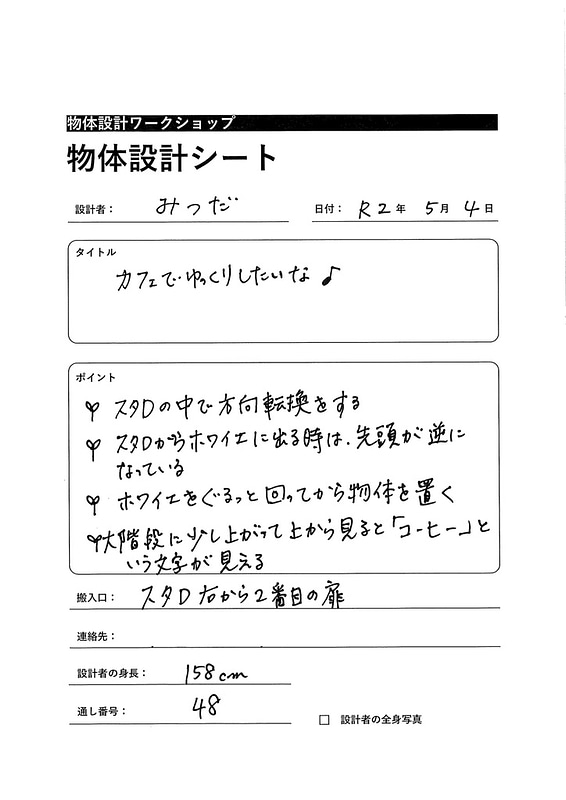 物体設計ワークショップ
物体設計シート
設計者： みつだ 日付： R2年 5月 4日
タイトル
カフェでゆっくりしたいな♪
ポイント
スタDの中で方向転換をする
スタDからホワイエに出る時は、先頭が逆に
なっている
ホワイエをぐるっと回ってから物体を置く
大階段に少し上がって上から見ると「コーヒー」と
いう文字が見える
搬入口： スタD 右から2番目の扉
連絡先：
設計者の身長： 158cm
通し番号： 48
□ 設計者の全身写真